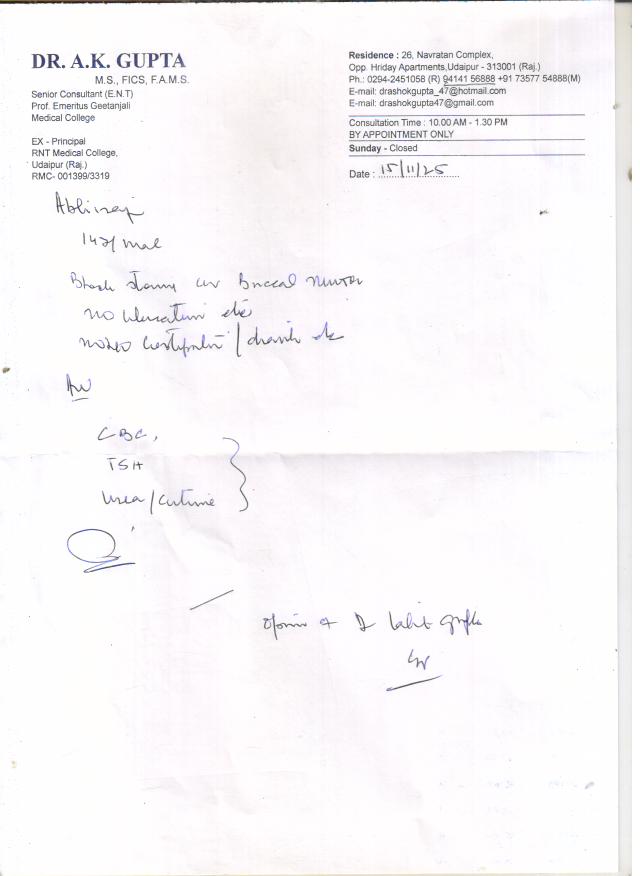 DR. A.K. GUPTA
M.S., FICS, F.A.M.S.
Senior Consultant (E.N.T)
Prof. Emeritus Geetanjali
Medical College
EX - Principal
RNT Medical College,
Udaipur (Raj.)
RMC- 001399/3319
Residence : 26, Navratan Complex,
Opp. Hriday Apartments,Udaipur - 313001 (Raj.)
Ph.: 0294-2451058 (R) 94141 56888 +91 73577 54888(M)
E-mail: drashokgupta_47@hotmail.com
E-mail: drashokgupta47@gmail.com
Consultation Time : 10.00 AM - 1.30 PM
BY APPOINTMENT ONLY
Sunday - Closed
Date : 15/11/25
Abhiraj
Buccal
no
CBC,
TSH
Urea /
Lalit Gupta